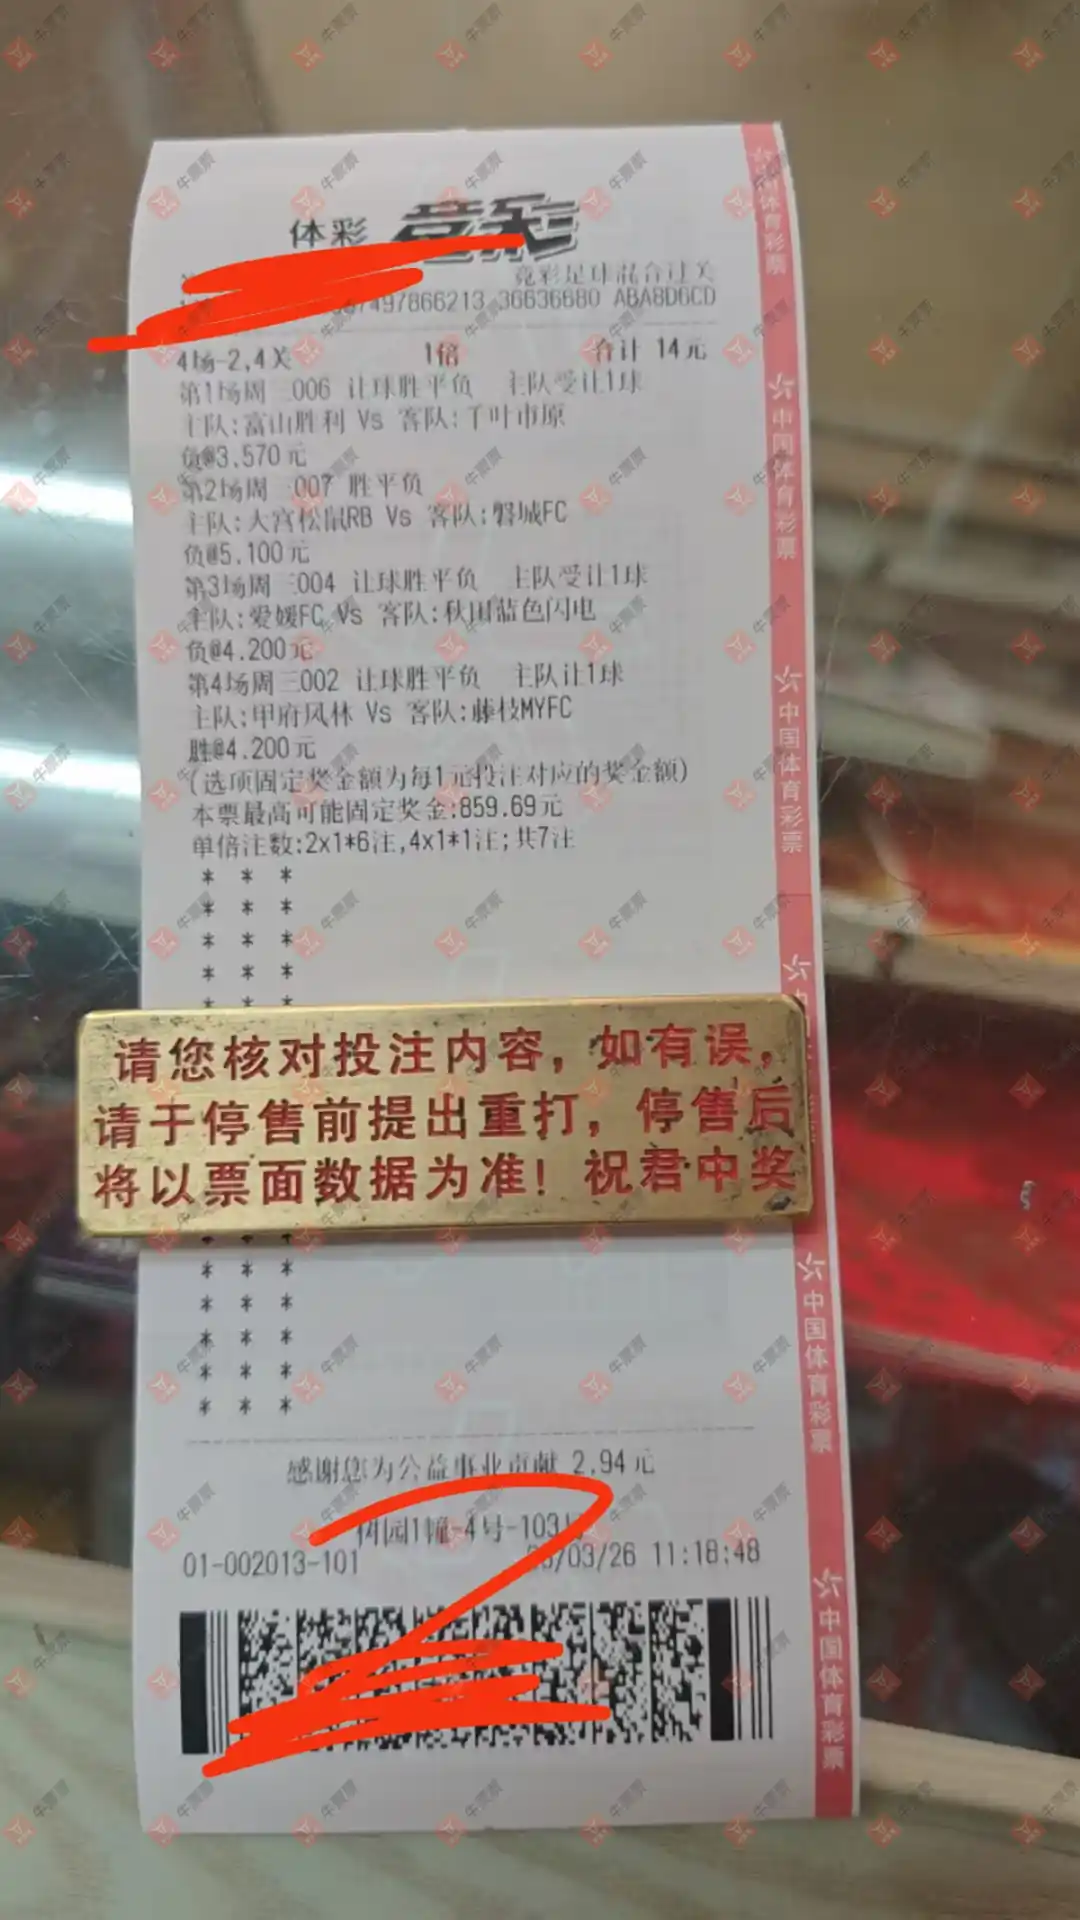 体彩 竞彩
竞彩足球混合过关
7497866213 36636680 ABA8D6CD
4场-2,4关 1倍 合计 14元
第1场周三006 让球胜平负 主队受让1球
主队:富山胜利 Vs 客队:千叶市原
负@3.570元
第2场周三007 胜平负
主队:大宫松鼠RB Vs 客队:磐城FC
负@5.100元
第3场周三004 让球胜平负 主队受让1球
主队:爱媛FC Vs 客队:秋田蓝色闪电
负@4.200元
第4场周三002 让球胜平负 主队让1球
主队:甲府风林 Vs 客队:藤枝MYFC
胜@4.200元
(选项固定奖金额为每1元投注对应的奖金额)
本票最高可能固定奖金:859.69元
单倍注数:2x1*6注,4x1*1注;共7注
* * *
* * *
* * *
* * *
* * *
请您核对投注内容，如有误，
请于停售前提出重打，停售后
将以票面数据为准！祝君中奖
* * *
* * *
* * *
* * *
* * *
* * *
感谢您为公益事业贡献 2.94元
树园1幢-4号-103
01-002013-101 /03/26 11:18:48
中国体育彩票
中国体育彩票
中国体育彩票
中国体育彩票
中国体育彩票
牛票票